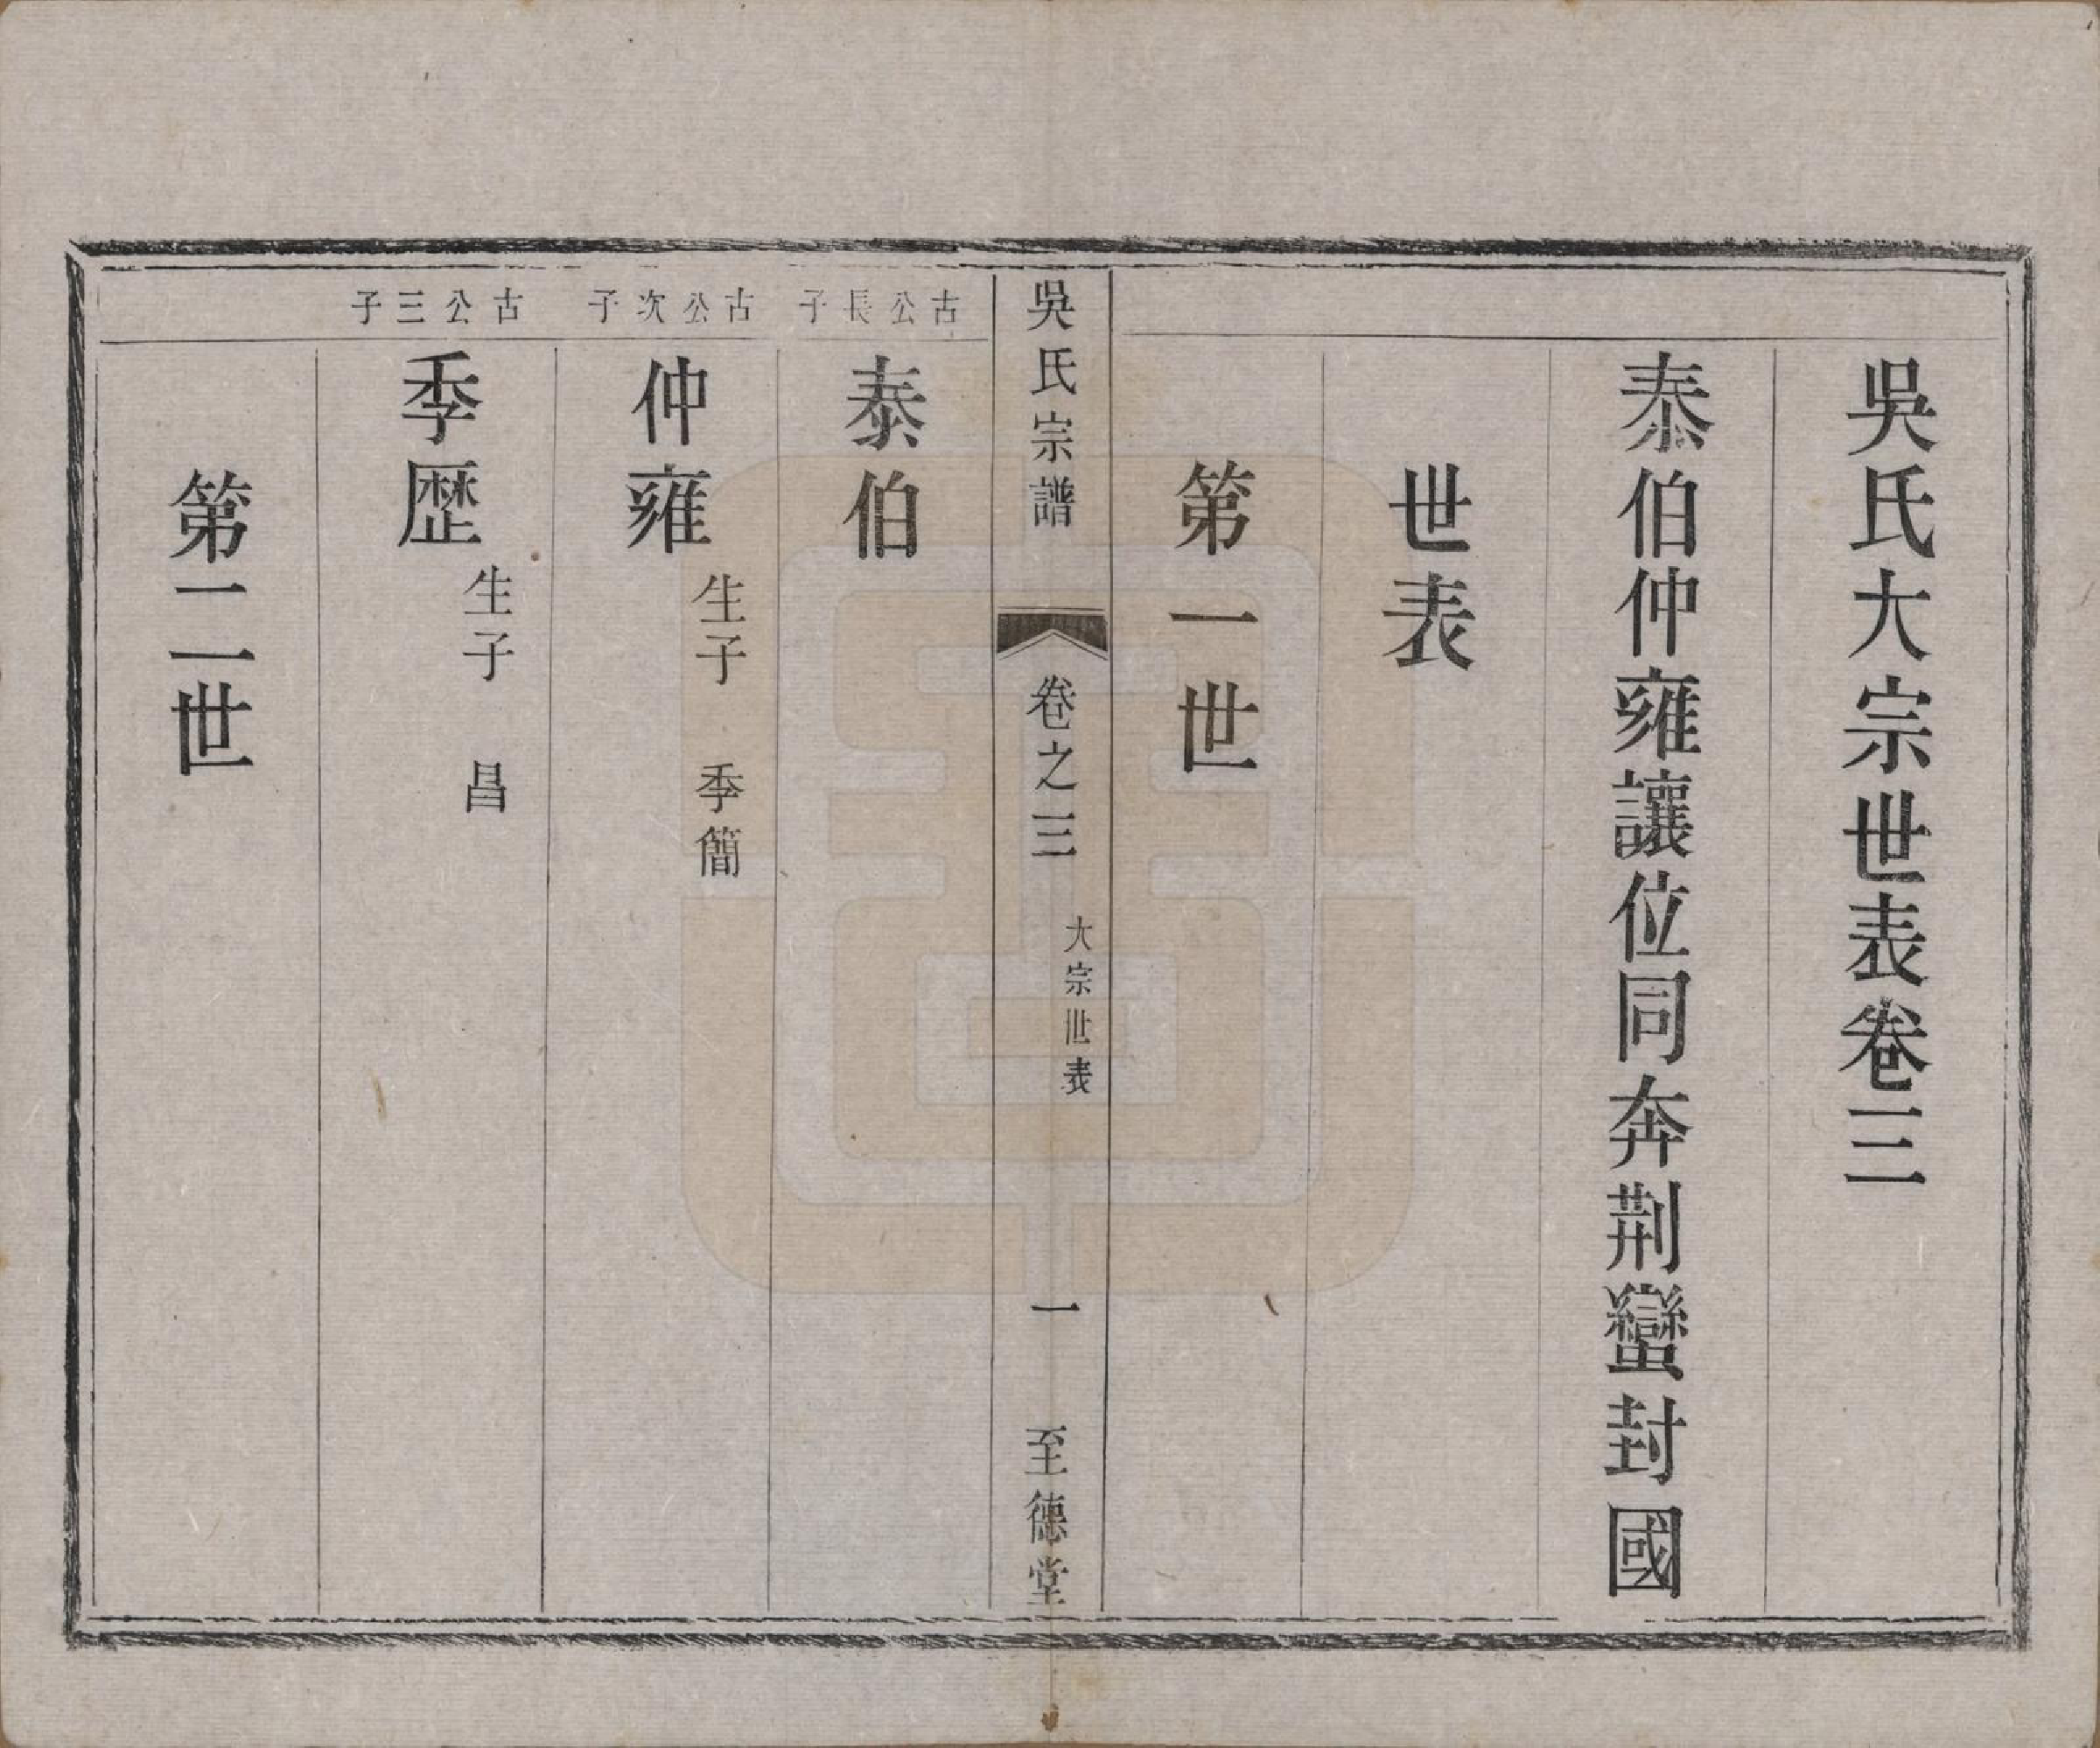 吳氏大宗世表卷三
泰伯仲雍讓位同奔荆蠻封國
世表
第一世
吳氏宗譜
卷之三
大宗世表
一
至德堂
古公長子
泰伯
古公次子
仲雍
生子 季簡
古公三子
季歷
生子 昌
第二世